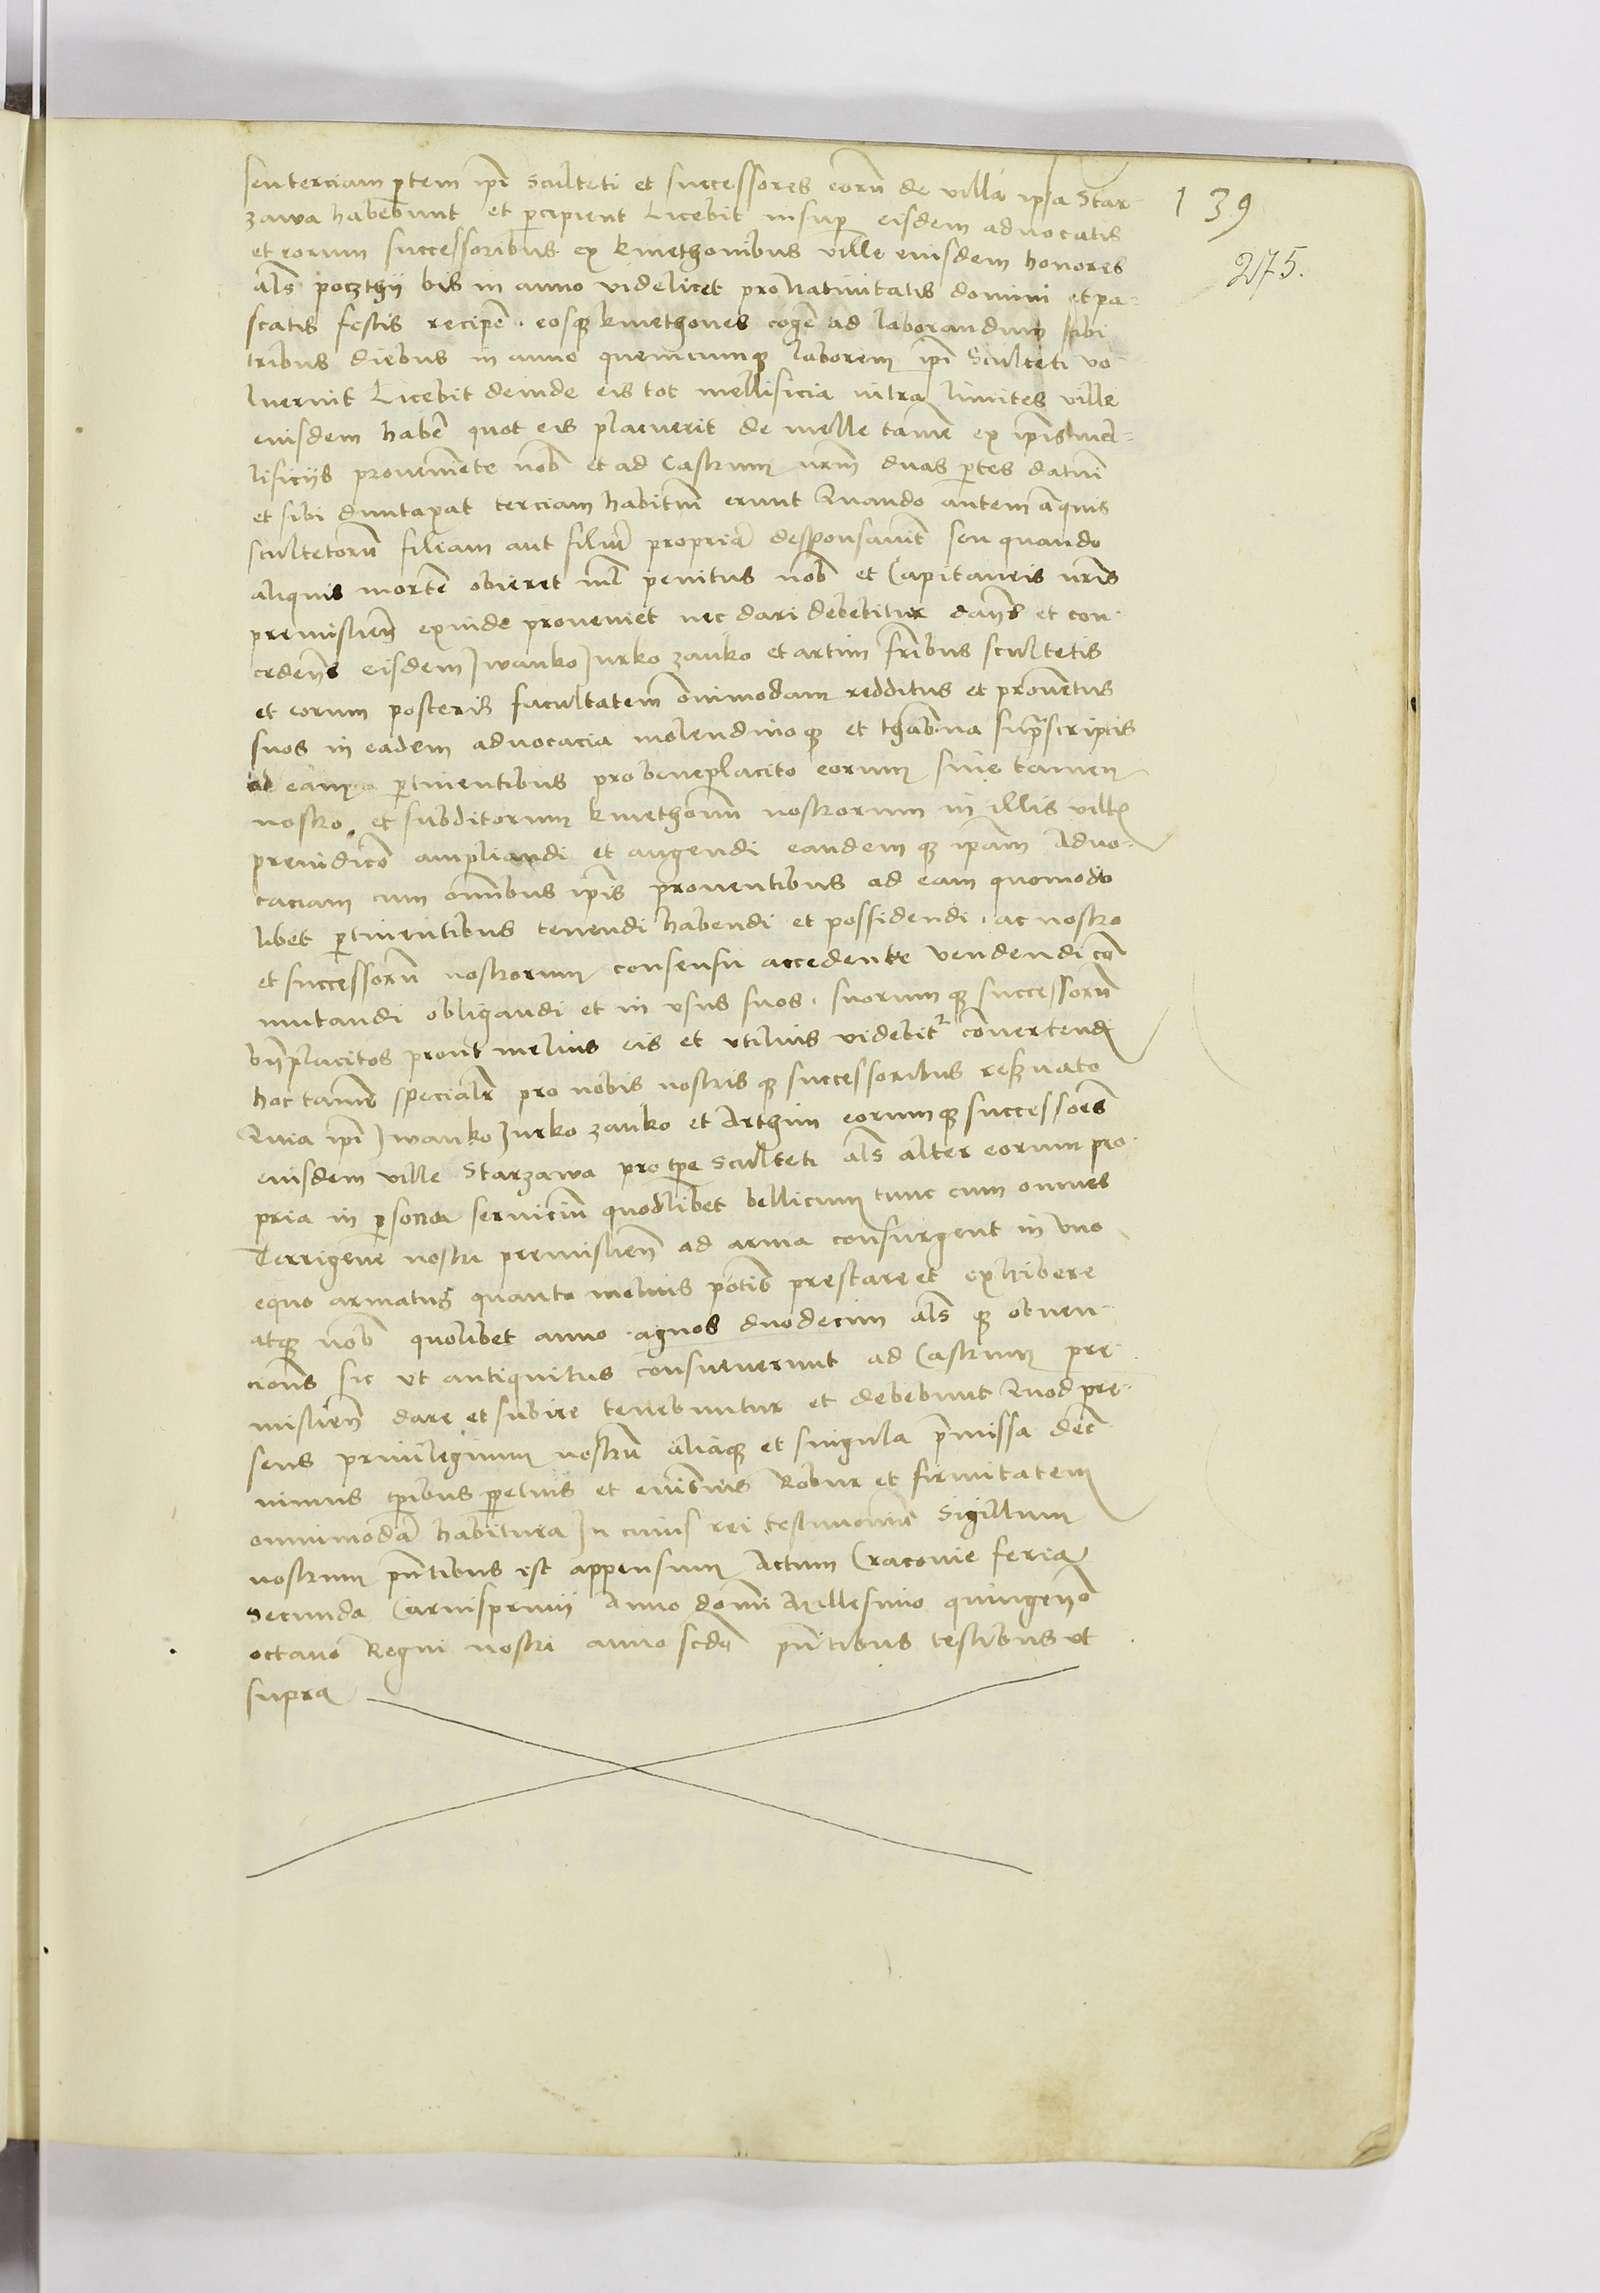 seu terciam ptem ipi Sculteti et successores eoru de villa ipsa Star-
zawa habebunt et pcipient Licebit insup eisdem advocatis
139
et eorum successoribus ex kmethonibus ville eiusdem honores
275.
als poczthy bis in anno videlicet pro Nativitatis domini et pa-
scatis festis recipe. eosq kmethones coge ad laborandum sibi
tribus diebus in anno quemcumq laborem ipi Sculteti vo-
luerint Licebit deinde eis tot mellificia intra limites ville
eiusdem habe quot eis placuerit de melle tame ex ipis mel-
lificijs proveniente nob et ad Castrum nrm duas ptes daturi
et sibi duntaxat terciam habituri erunt Quando autem aliquis
scultetoru filiam aut filiu propria desponsauit seu quando
aliquis morte obieret nil penitus nob et Capitaneis nris
premislien exinde proveniet nec dari debebitur dans et con-
cedens eisdem Iwanko Jurko zanko et artim fribus scultetis
et eorum posteris facultatem omnimodam redditus et proventus
suos in eadem advocacia molendinoq et thabna suprascriptis
ad eam pertinentibus pro beneplacito eorum sine tamen
nostro et subditorum kmethonu nostrorum in illis villis
preiudico ampliandi et augendi eandemq ipam Advo-
caciam cum omnibus ipis proventibus ad eam quomodo
libet ptinentibus tenendi habendi et possidendi. ac nostro
et successoru nostrorum consensu accedente vendendi co
mutandi obligandi et in usus suos. suorumq successoru
bnplacitos prout melius eis et utilius videbit convertendi
hoc tame specialr pro nobis nostrisq successoribus resvato
Quia ipi Iwanko Jurko zanko et Arthim eorumq successores
eiusdem ville Starzawa pro tpe sculteti als alter eorum pro-
pria in psona serviciu quodlibet bellicum tunc cum omnes
Terrigene nostri premislien ad arma consurgent in uno
equo armatus quanto melius potib prestare et exhibere
atq nob quolibet anno agnos duodecim als q obven-
ciones sic ut antiquitus consueverunt ad Castrum pre-
mislien dare et subire tenebuntur et debebunt Quod pre-
sens privilegium nostru aliaq et singula pmissa dec
nimus tpibus ppetuis et Robur et firmitatem
omnimoda habitura In cuius rei testimoniu Sigillum
nostrum pntibus est appensum Actum Cracovie feria
Secunda Carnisprivii Anno domi Millesimo quingeno
octavo Regni nostri anno scdo pntibus testibus ut
supra